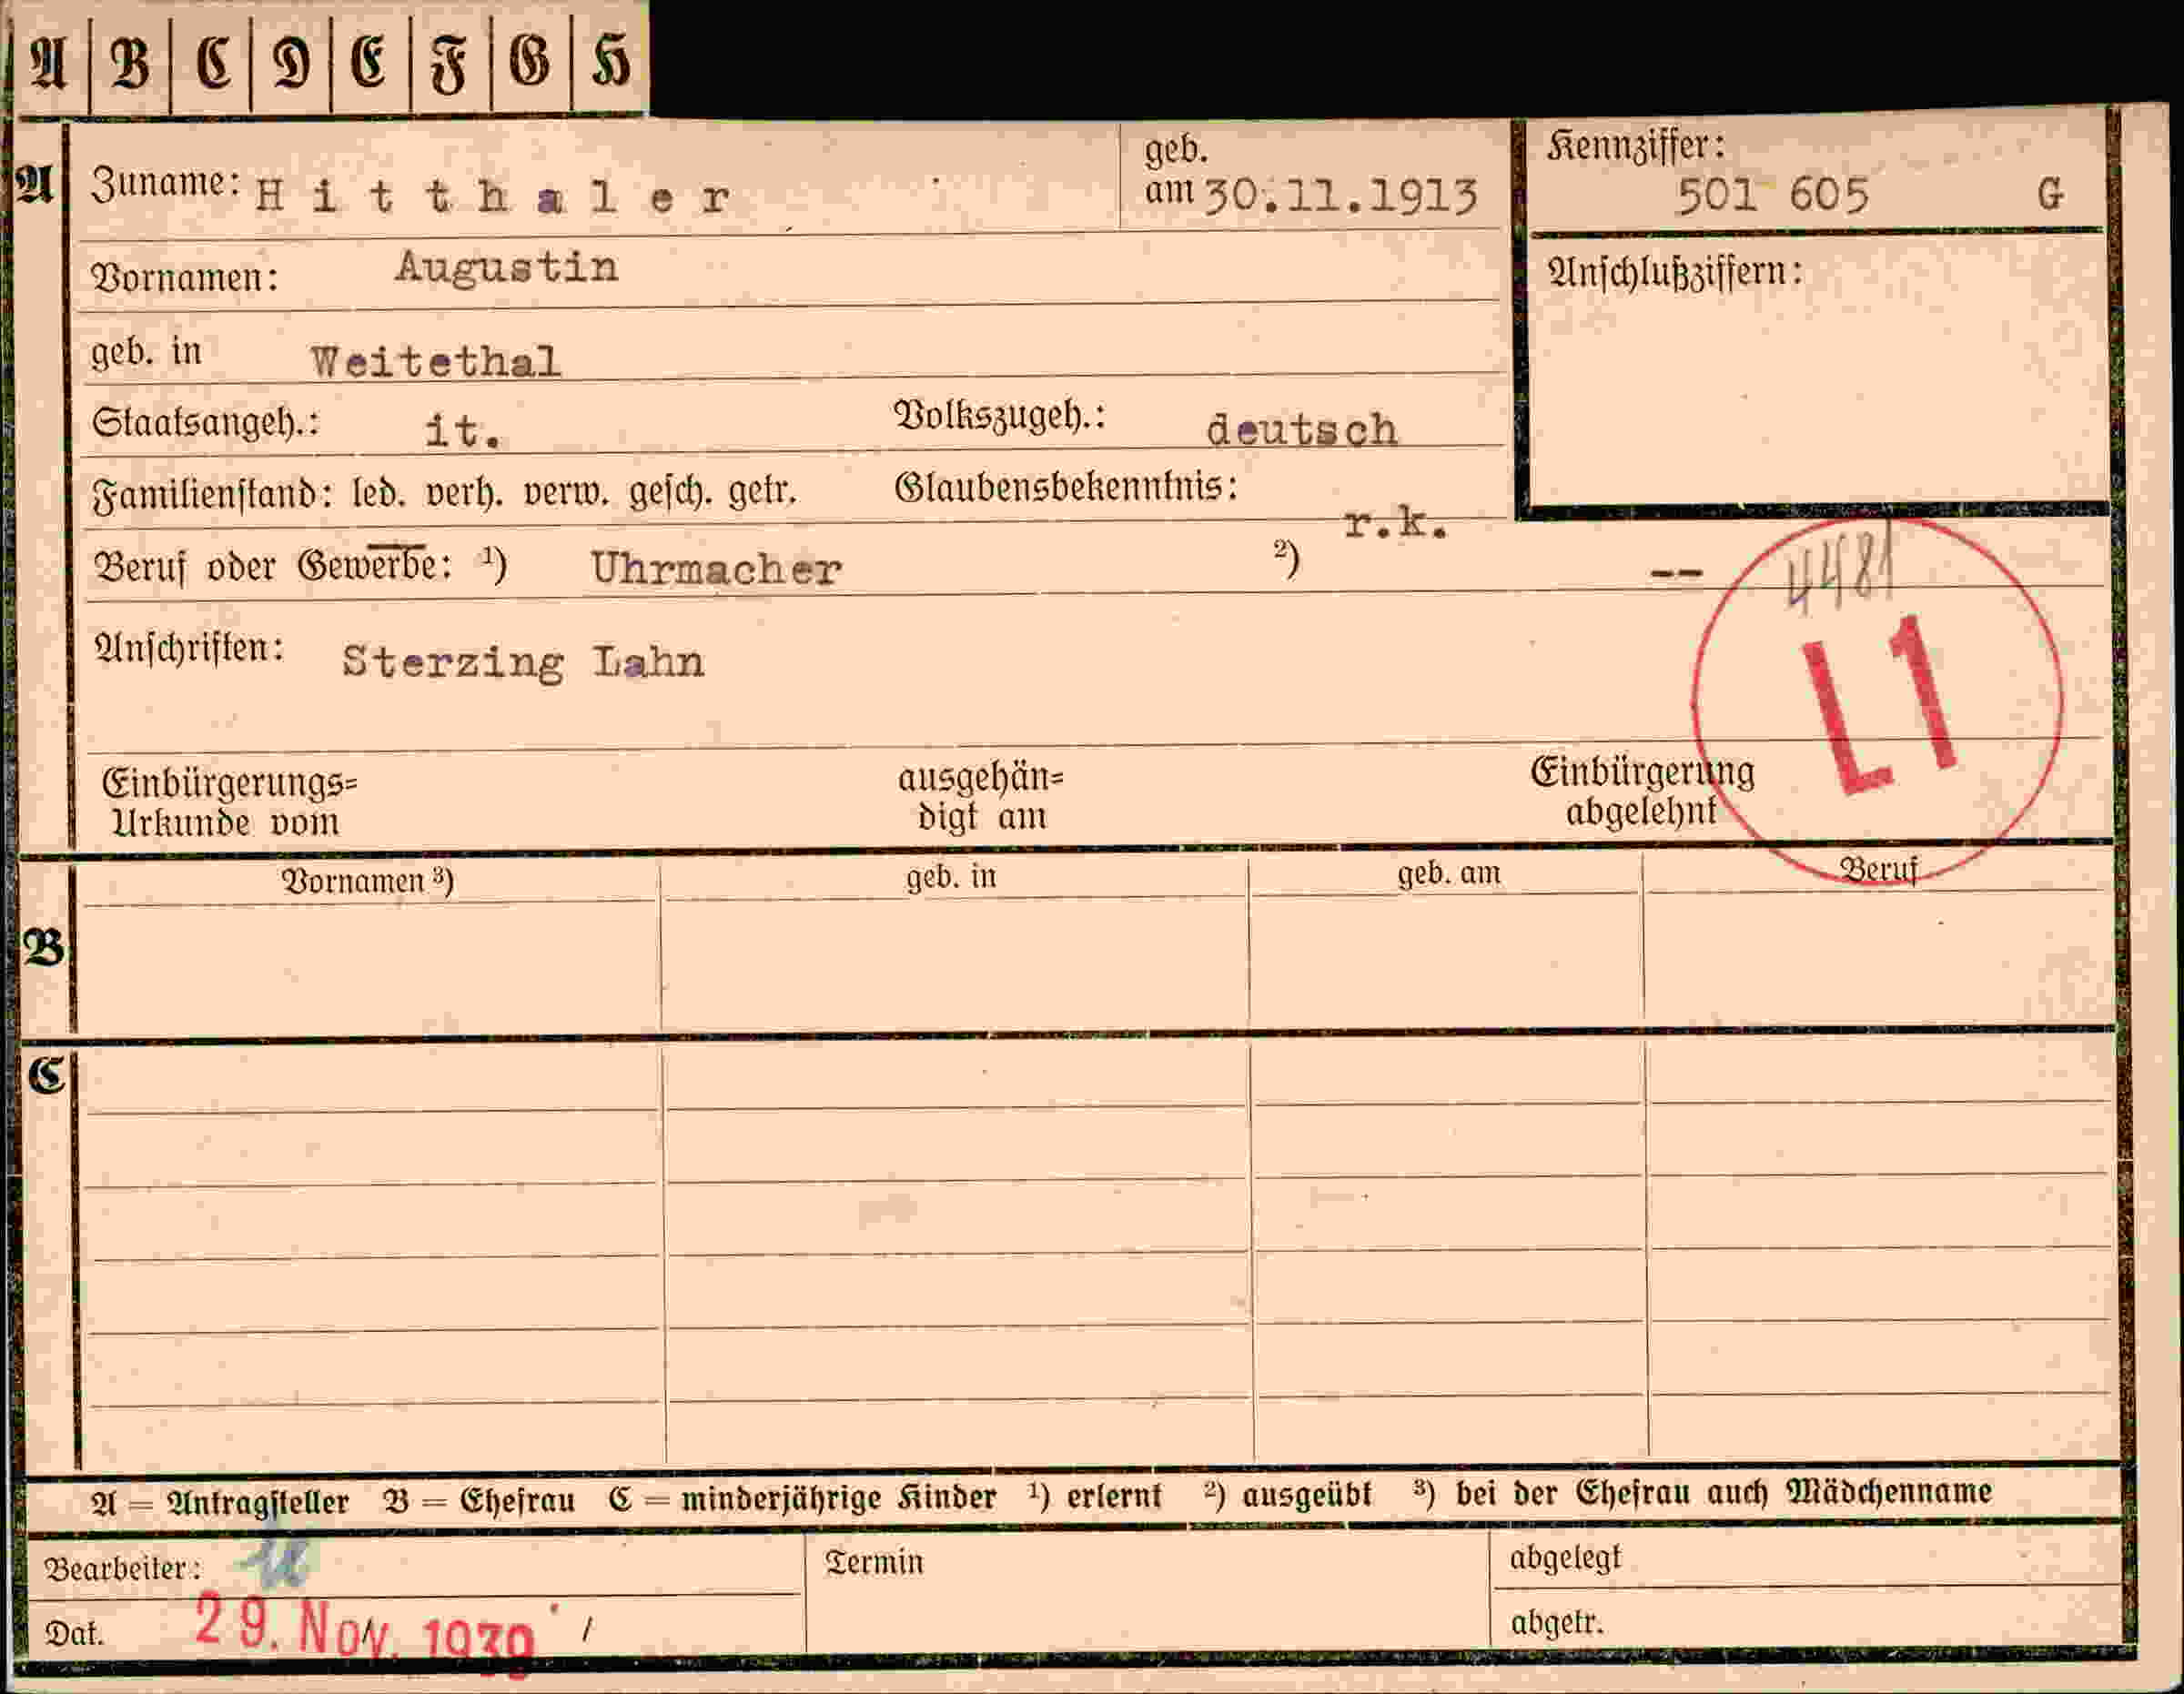 A B C D E F G H
A Zuname: Hitthaler geb. am 30.11.1913 Kennziffer: 501 605 G
Vornamen: Augustin Anschlußziffern:
geb. in Weitethal
Staatsangeh.: it. Volkszugeh.: deutsch
Familienstand: led. verh. verw. gesch. getr. Glaubensbekenntnis: r.k.
Beruf oder Gewerbe: ¹) Uhrmacher ²) --
4481
Anschriften: Sterzing Lahn
L1
Einbürgerungs= ausgehän= Einbürgerung
Urkunde vom digt am abgelehnt
Vornamen ³) geb. in geb. am Beruf
B
C
A = Antragsteller B = Ehefrau C = minderjährige Kinder ¹) erlernt ²) ausgeübt ³) bei der Ehefrau auch Mädchenname
Bearbeiter: Termin abgelegt
Dat. 29. Nov. 1939 / abgetr.